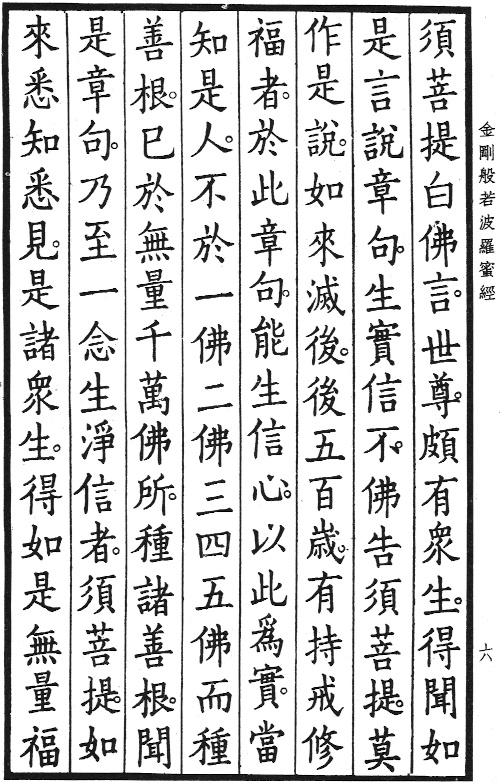 金剛般若波羅蜜經
六
須菩提白佛言。世尊。頗有眾生。得聞如
是言說章句。生實信不。佛告須菩提。莫
作是說。如來滅後。後五百歲。有持戒修
福者。於此章句。能生信心。以此爲實。當
知是人。不於一佛二佛三四五佛而種
善根。已於無量千萬佛所。種諸善根。聞
是章句。乃至一念生淨信者。須菩提。如
來悉知悉見。是諸眾生。得如是無量福